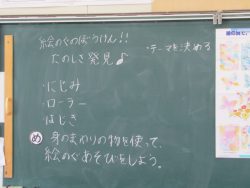 絵のぐのぼうけん!!
たのしさ発見♪
・テーマを決める
・にじみ
・ローラー
・はじき
め 身のまわりの物を使って、
絵のぐあそびをしよう。